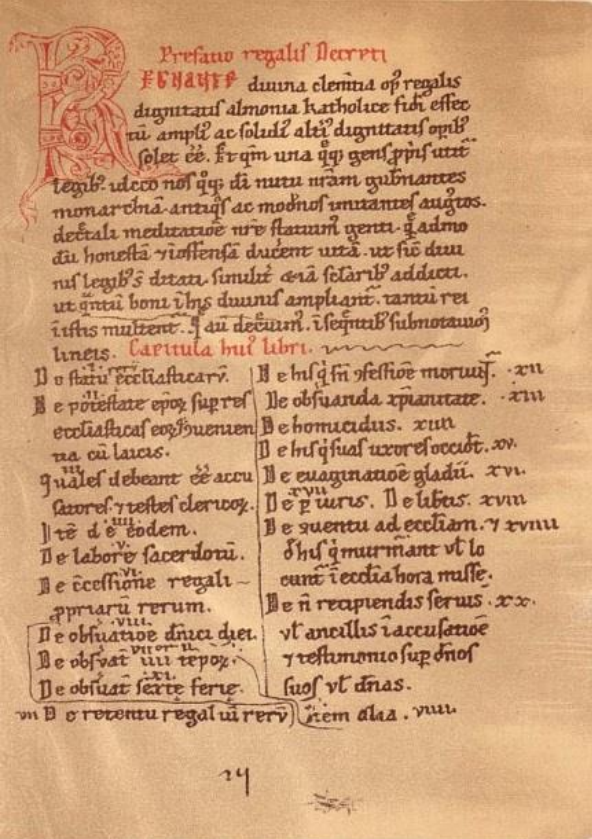 Prefatio regalis Decreti
REGNANTE diuina clem̄tia op̄ regalis
dignitatis alimonia katholice fidei effec
tū ampli᷒ ac solidi᷒ alti᷒ dignitatis opib᷒
solet ēē. Et qm̄ una q̄q; gens ꝓpriis utit᷑
legib᷒. idcco nos q̄q; dī nutu nr̄am gub̄nantes
monarchiā. antiq̄s ac modn̄os imitantes augustos.
dec̄tali meditatioē nr̄e statuim᷒ genti. q̄ admo
dū honestā ⁊ īoffensā ducent uitā. ut sic diui
nis legib᷒ s̄ ditati. similit̄ &iā sclārib᷒ adducti.
ut q̄ntū boni ī his diuinis ampliant᷑. tantū rei
ī istis multent᷑. Q̄ au᷑ dec̄uim᷒. ī seq̄ntib᷒ subnotauim᷒
lineis. Capitula hui᷒ libri.
De statu eccl̄iasticarū.
De potestate ep̄oꝝ sup res
eccl̄iasticas eoꝝq̄ ꝯuenien
tia cū laicis.
III
Quales debeant ēē accu
satores. ⁊ testes clericoꝝ.
Itē de eodem. IIII
De labore sacerdotū. V
De ꝯcessione regali VI
ꝓpriarū rerum.
De obs̄uatiōe dn̄ici diei. VIII
De obs̄uat̄ IIII tēpoꝝ.
De obs̄uat̄ sexte ferie. XI
VII De retentu regaliū rerū
De his q̄ sn̄ ꝯfessiōe moriunt᷑. XII
De obs̄uanda xp̄ianitate. XIII
De homicidiis. XIIII
De his q̄ suas uxores occidt̄. XV.
De euaginatiōe gladii. XVI.
XVII
De p̄iuris. De lib̄tis. XVIII
De ꝯuentu ad eccl̄iam. ⁊ XVIIII
d̄ his q̄ murm̄ant ul̄ lo
cunt᷑ ī eccl̄ia hora misse.
De n̄ recipiendis seruis. XX.
ul̄ ancillis ī accusatiōe
⁊ testimonio sup dn̄os
suos ul̄ dn̄as.
Itēm alia. VIIII